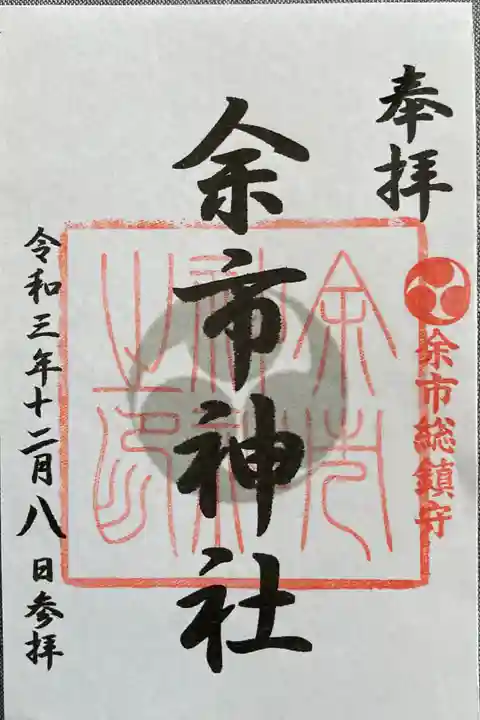 奉拝
余市総鎮守
余市神社
余市神社之印
令和三年十二月八日参拝